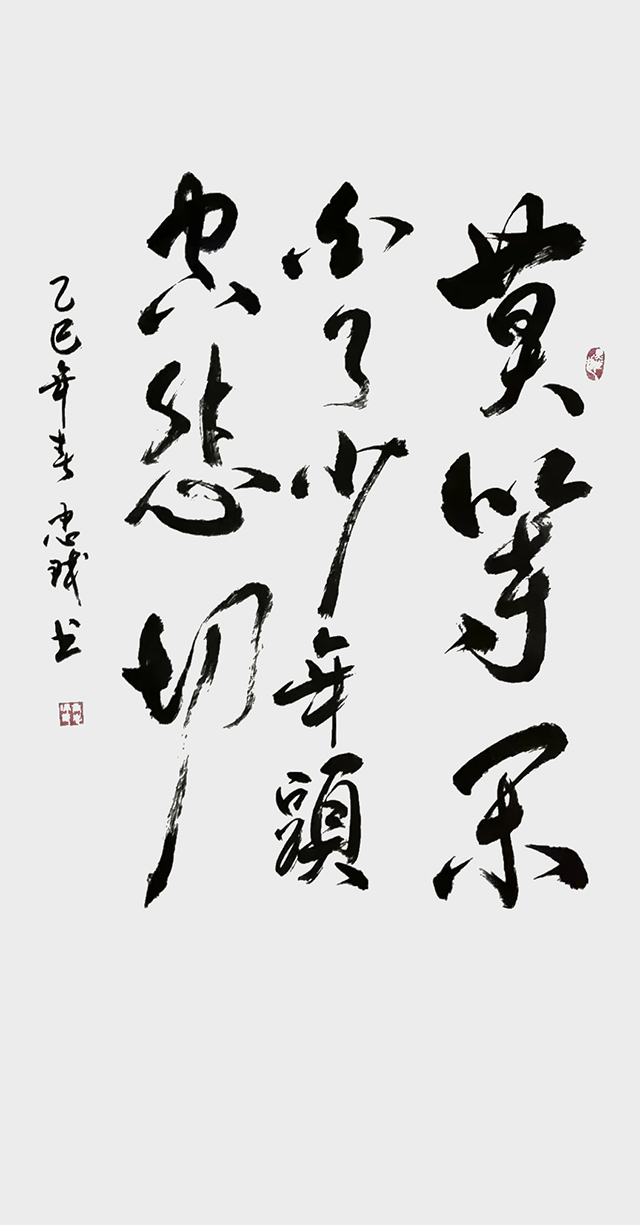 莫等闲
白了少年頭
空悲切
乙巳年春 忠 书